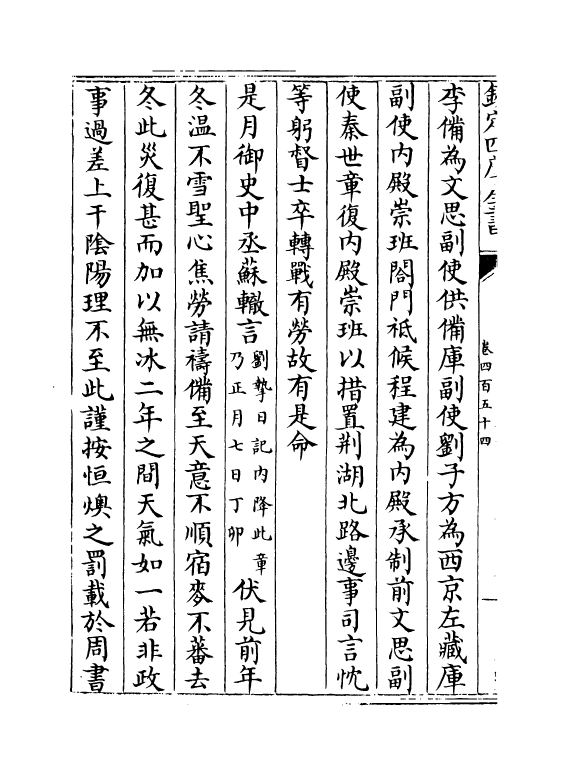 欽定四庫全書
卷四百五十四
李備為文思副使供備庫副使劉子方為西京左藏庫
副使内殿崇班閤門祗候程建為内殿承制前文思副
使秦世章復内殿崇班以措置荆湖北路邊事司言忱
等躬督士卒轉戰有勞故有是命
是月御史中丞蘇轍言劉摯日記内降此章乃正月七日丁卯伏見前年
冬温不雪聖心焦勞請禱備至天意不順宿麥不蕃去
冬此災復甚而加以無冰二年之間天氣如一若非政
事過差上干陰陽理不至此謹按恒燠之罰載於周書